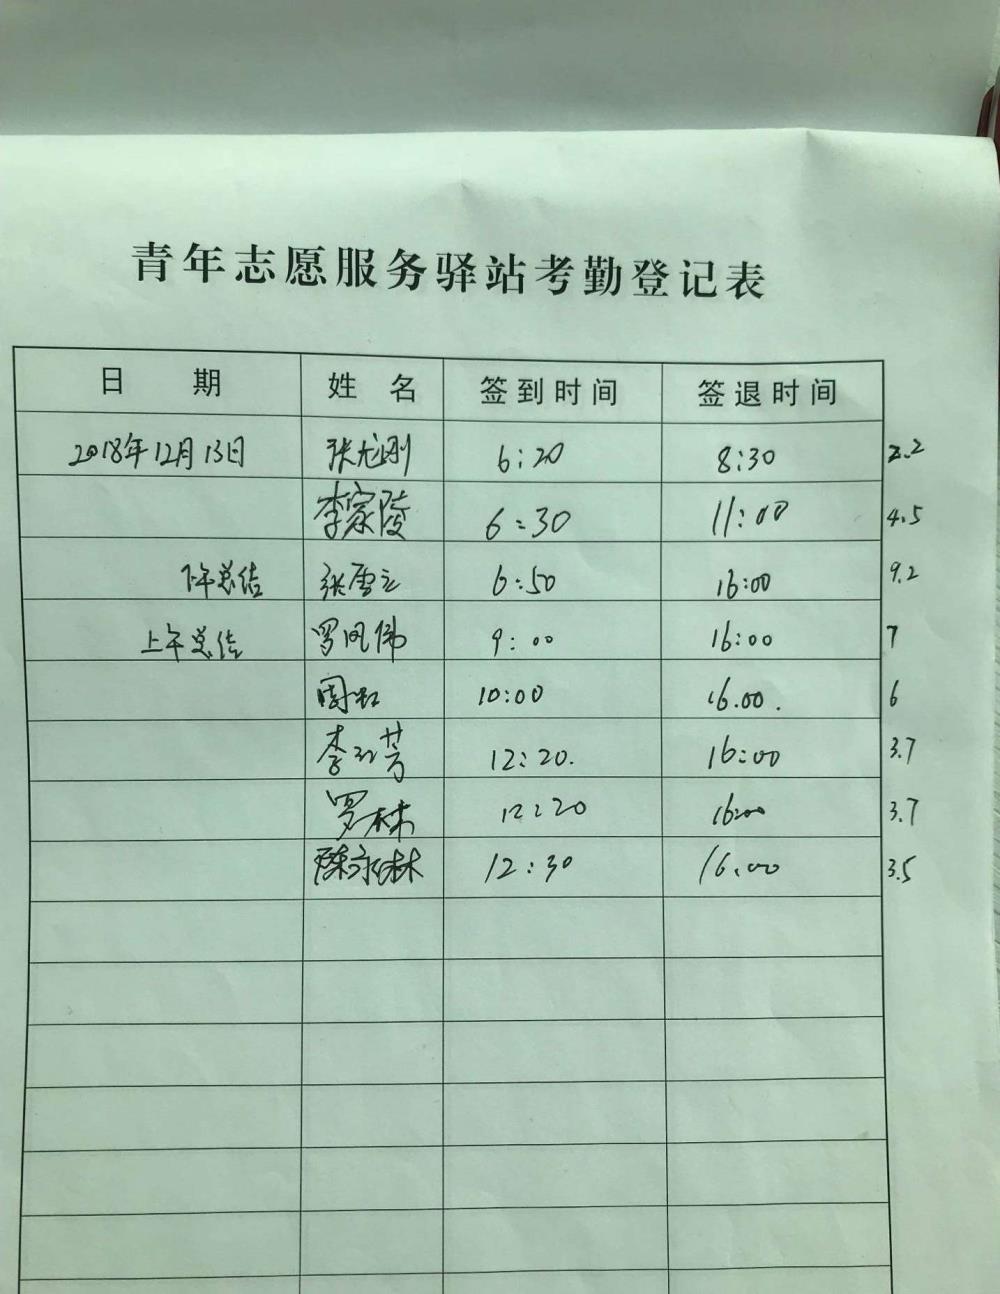 青年志愿服务驿站考勤登记表
日 期 姓 名 签到时间 签退时间
2018年12月13日 张龙刚 6:20 8:30 2.2
李家陵 6:30 11:00 4.5
下午总结 张雪立 6:50 16:00 9.2
上午总结 罗凤伟 9:00 16:00 7
周虹 10:00 16.00. 6
李红芳 12:20. 16:00 3.7
罗林 12:20 16:00 3.7
陈永林 12:30 16.00 3.5